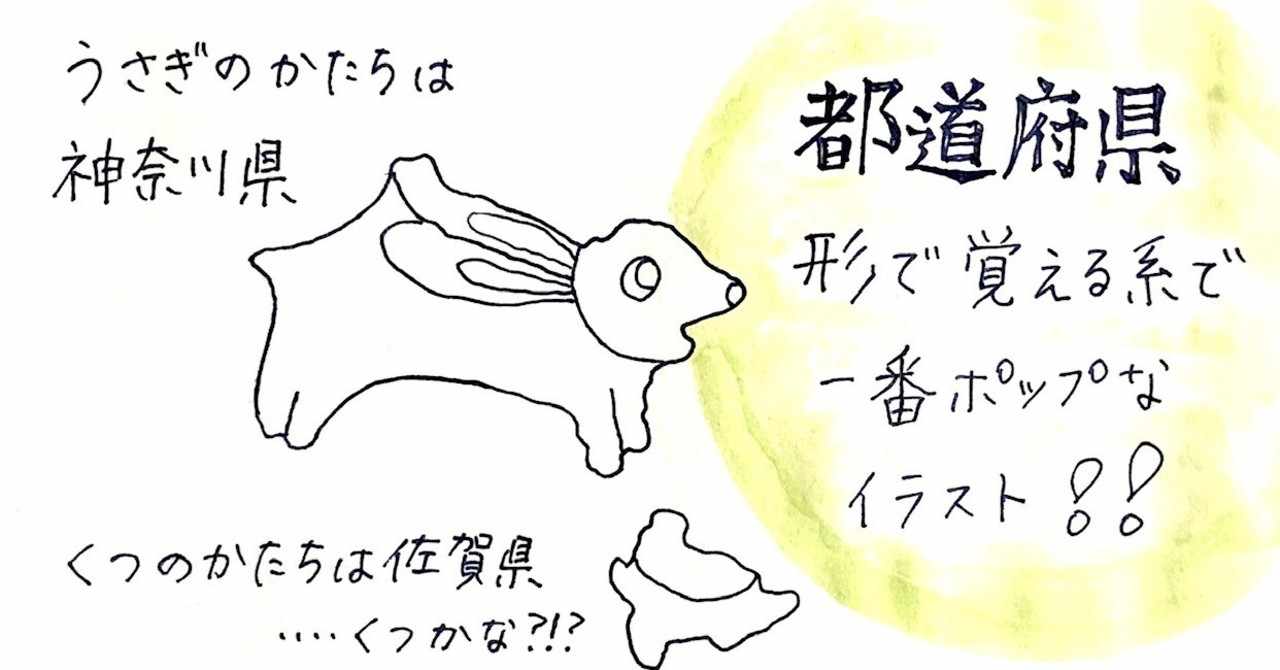 うさぎのかたちは
神奈川県
都道府県
形で覚える系で
一番ポップな
イラスト!!
くつのかたちは佐賀県
‥‥くつかな?!?